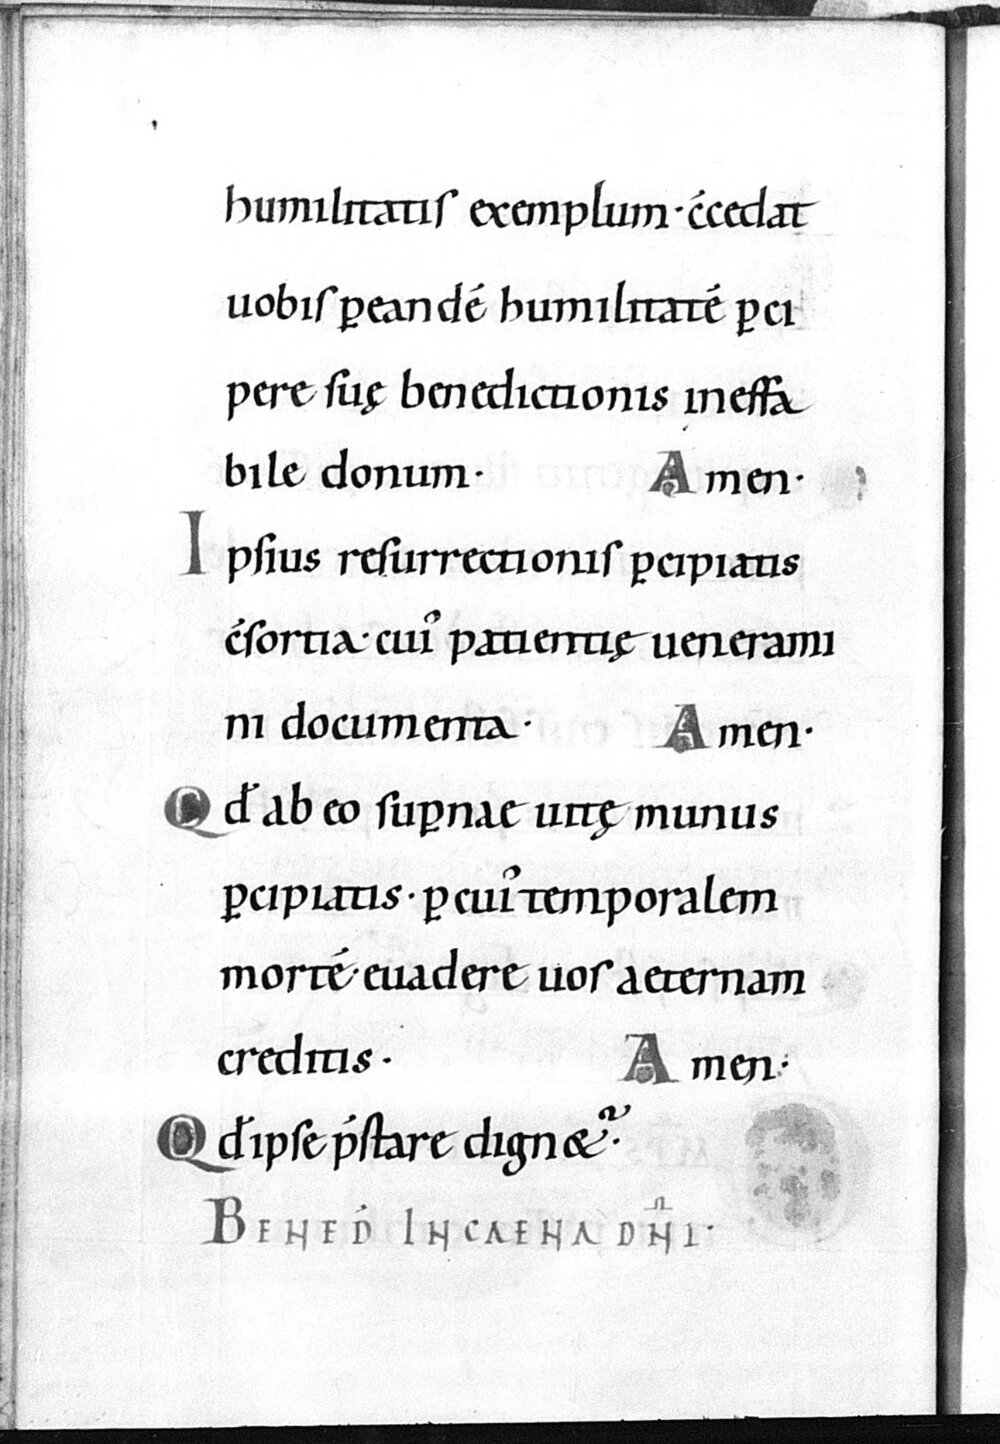 humilitatis exemplum · c̄cedat
uobis p̲eandē humilitatē p̲ci
pere suę benedictionis ineffa
bile donum · Amen ·
Ipsius resurrectionis p̲cipiatis
c̄sortia · cui᾽ patientię uenerami
ni documenta · Amen ·
Qđ ab eo sup̲nae uitę munus
p̲cipiatis · p̲ cui᾽ temporalem
mortē · euadere uos aeternam
creditis · Amen ·
Qđ ipse p̄stare dignet᷑ ·
BENED̄ IN CAENA DN̄I ·